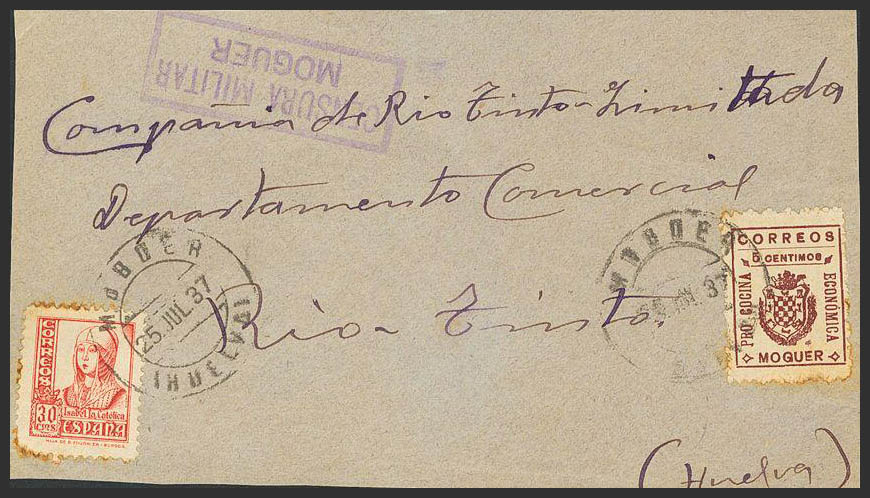 CENSURA MILITAR
MOGUER
Compañia de Rio Tinto-Limitada
Departamento Comercial
Rio-Tinto.
(Huelva)
MOGUER
25 JUL 37
(HUELVA)
MOGUER
25 JUL 37
CORREOS
30
CTMS
Isabel la Católica
ESPAÑA
HIJA DE B. FOURNIER-BURGOS.
CORREOS
5 CENTIMOS
PRO COCINA
ECONOMICA
MOGUER